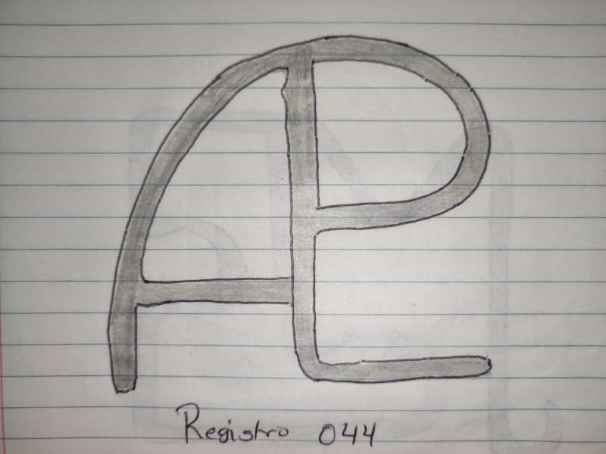 APL
Registro 044